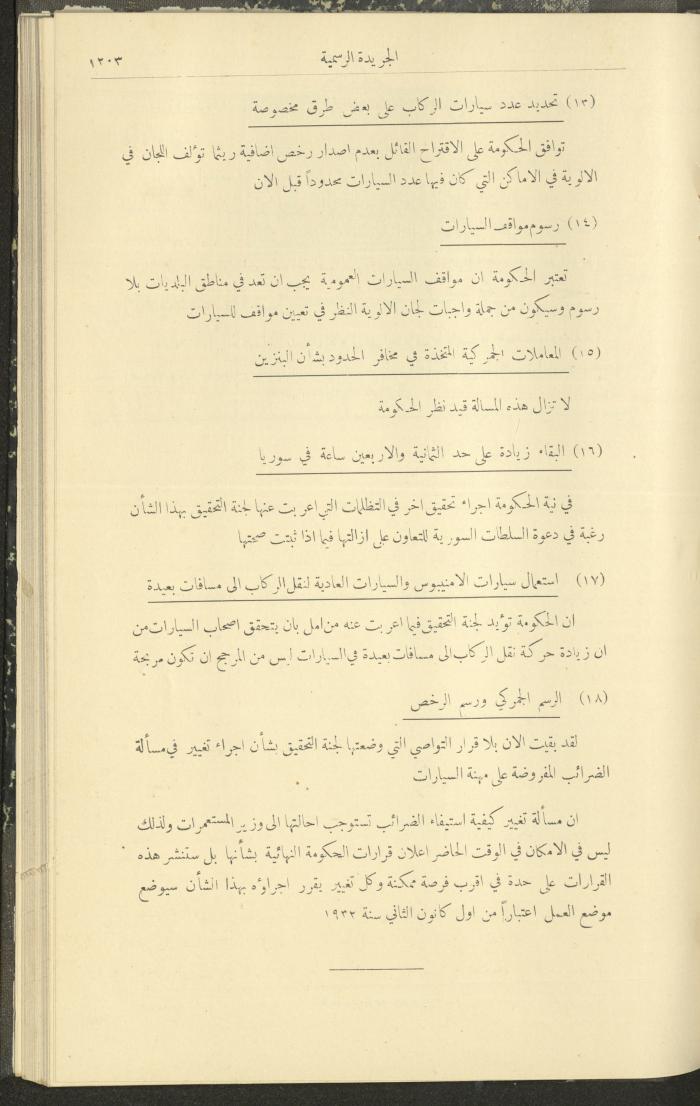 الجريدة الرسمية
١٢٠٣
(١٣) تحديد عدد سيارات الركاب على بعض طرق مخصوصة
توافق الحكومة على الاقتراح القائل بعدم اصدار رخص اضافية ريثما تؤلف اللجان في
الالوية في الاماكن التي كان فيها عدد السيارات محدوداً قبل الان
(١٤) رسوم مواقف السيارات
تعتبر الحكومة ان مواقف السيارات العمومية يجب ان تعد في مناطق البلديات بلا
رسوم وسيكون من جملة واجبات لجان الالوية النظر في تعيين مواقف للسيارات
(١٥) المعاملات الجمركية المتخذة في مخافر الحدود بشأن البنزين
لا تزال هذه المسالة قيد نظر الحكومة
(١٦) البقاء زيادة على حد الثمانية والاربعين ساعة في سوريا
في نية الحكومة اجراء تحقيق اخر في التظلمات التي اعربت عنها لجنة التحقيق بهذا الشأن
رغبة في دعوة السلطات السورية للتعاون على ازالتها فيما اذا ثبتت صحتها
(١٧) استعمال سيارات الامنيبوس والسيارات العادية لنقل الركاب الى مسافات بعيدة
ان الحكومة تؤيد لجنة التحقيق فيما اعربت عنه من امل بان يتحقق اصحاب السيارات من
ان زيادة حركة نقل الركاب الى مسافات بعيدة في السيارات ليس من المرجح ان تكون مربحة
(١٨) الرسم الجمركي ورسم الرخص
لقد بقيت الان بلا قرار التواصي التي وضعتها لجنة التحقيق بشأن اجراء تغيير في مسألة
الضرائب المفروضة على مهنة السيارات
ان مسألة تغيير كيفية استيفاء الضرائب تستوجب احالتها الى وزير المستعمرات ولذلك
ليس في الامكان في الوقت الحاضر اعلان قرارات الحكومة النهائية بشأنها بل ستنشر هذه
القرارات على حدة في اقرب فرصة ممكنة وكل تغيير يقرر اجراؤه بهذا الشأن سيوضع
موضع العمل اعتباراً من اول كانون الثاني سنة ١٩٣٢